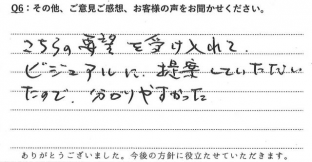 Q6：その他、ご意見ご感想、お客様の声をお聞かせください。
こちらの要望を受け入れて、
ビジュアルに、提案していただい
たので、分かりやすかった
ありがとうございました。今後の方針に役立たせていただきます。